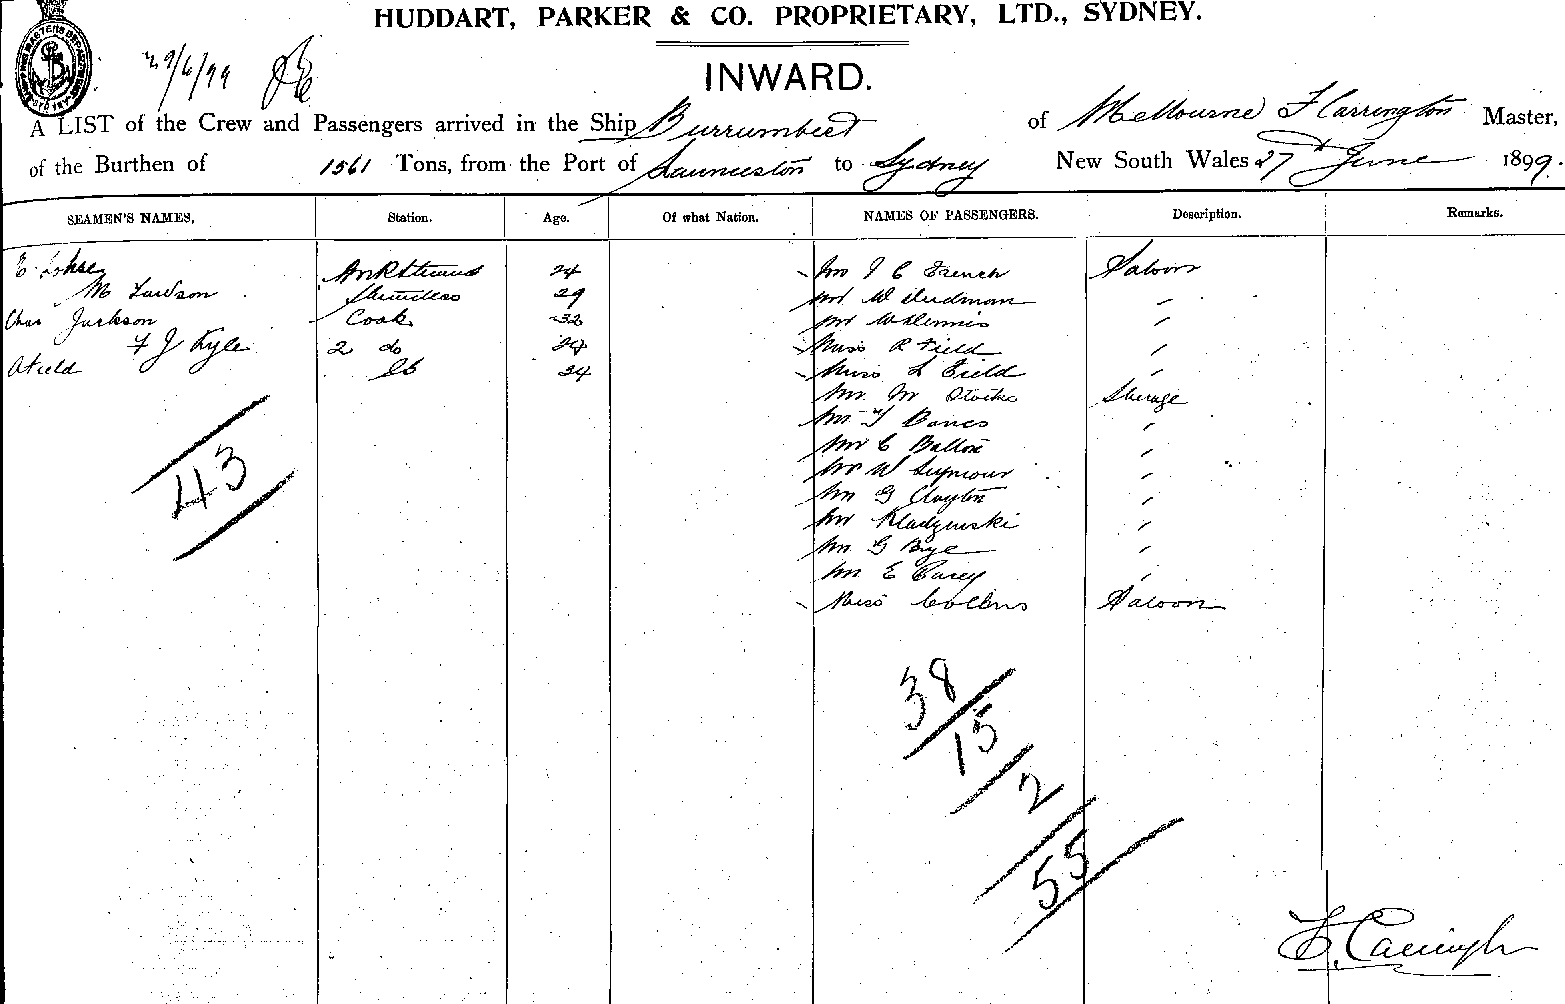 HUDDART, PARKER & CO. PROPRIETARY, LTD., SYDNEY.
29/6/99
INWARD.
A LIST of the Crew and Passengers arrived in the Ship Burrumbeet of Melbourne F Carrington Master,
of the Burthen of 1561 Tons, from the Port of Launceston to Sydney New South Wales 27th June 1899.
SEAMEN'S NAMES, Station. Age. Of what Nation. NAMES OF PASSENGERS. Description. Remarks.
E 24 Mr J C French Saloon
M Lawson Stewardess 29 Mr W "
Chas Jackson Cook 32 Mr W Dennis "
F J Kyle 2 do 24 Miss R Field "
A Field 24 Miss L Field "
Mr M Stocks Steerage
Mr T "
Mr C Balton "
Mr W Seymour "
Mr G Clayton "
Mr "
Mr G Bye "
Mr E Carey "
Miss Collins Saloon
43
38
15
2
55